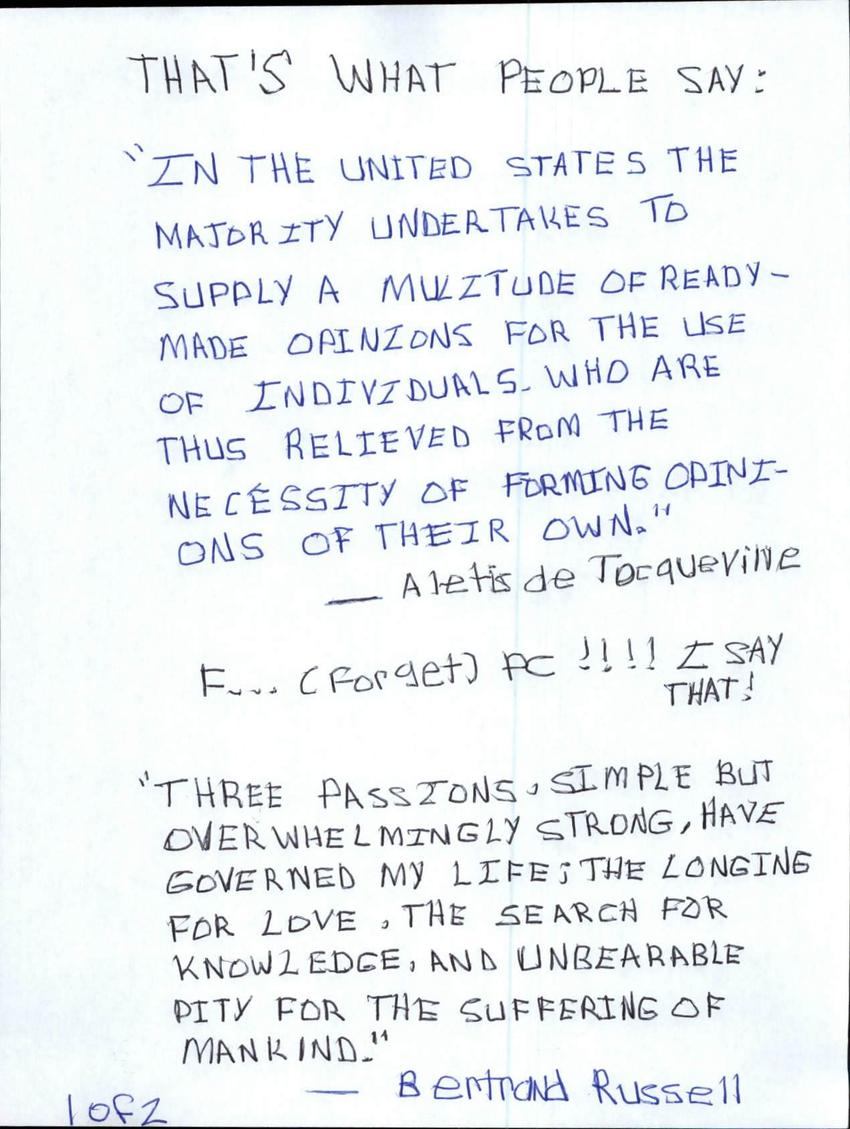 THAT'S WHAT PEOPLE SAY:
"IN THE UNITED STATES THE
MAJORITY UNDERTAKES TO
SUPPLY A MULITUDE OF READY-
MADE OPINIONS FOR THE USE
OF INDIVIDUALS. WHO ARE
THUS RELIEVED FROM THE
NECESSITY OF FORMING OPINI-
ONS OF THEIR OWN."
— Aletis de Tocqueville
F.... (Forget) PC !!!! I SAY
THAT!
"THREE PASSIONS, SIMPLE BUT
OVERWHELMINGLY STRONG, HAVE
GOVERNED MY LIFE; THE LONGING
FOR LOVE, THE SEARCH FOR
KNOWLEDGE, AND UNBEARABLE
PITY FOR THE SUFFERING OF
MANKIND."
— Bertrand Russell
1 of 2